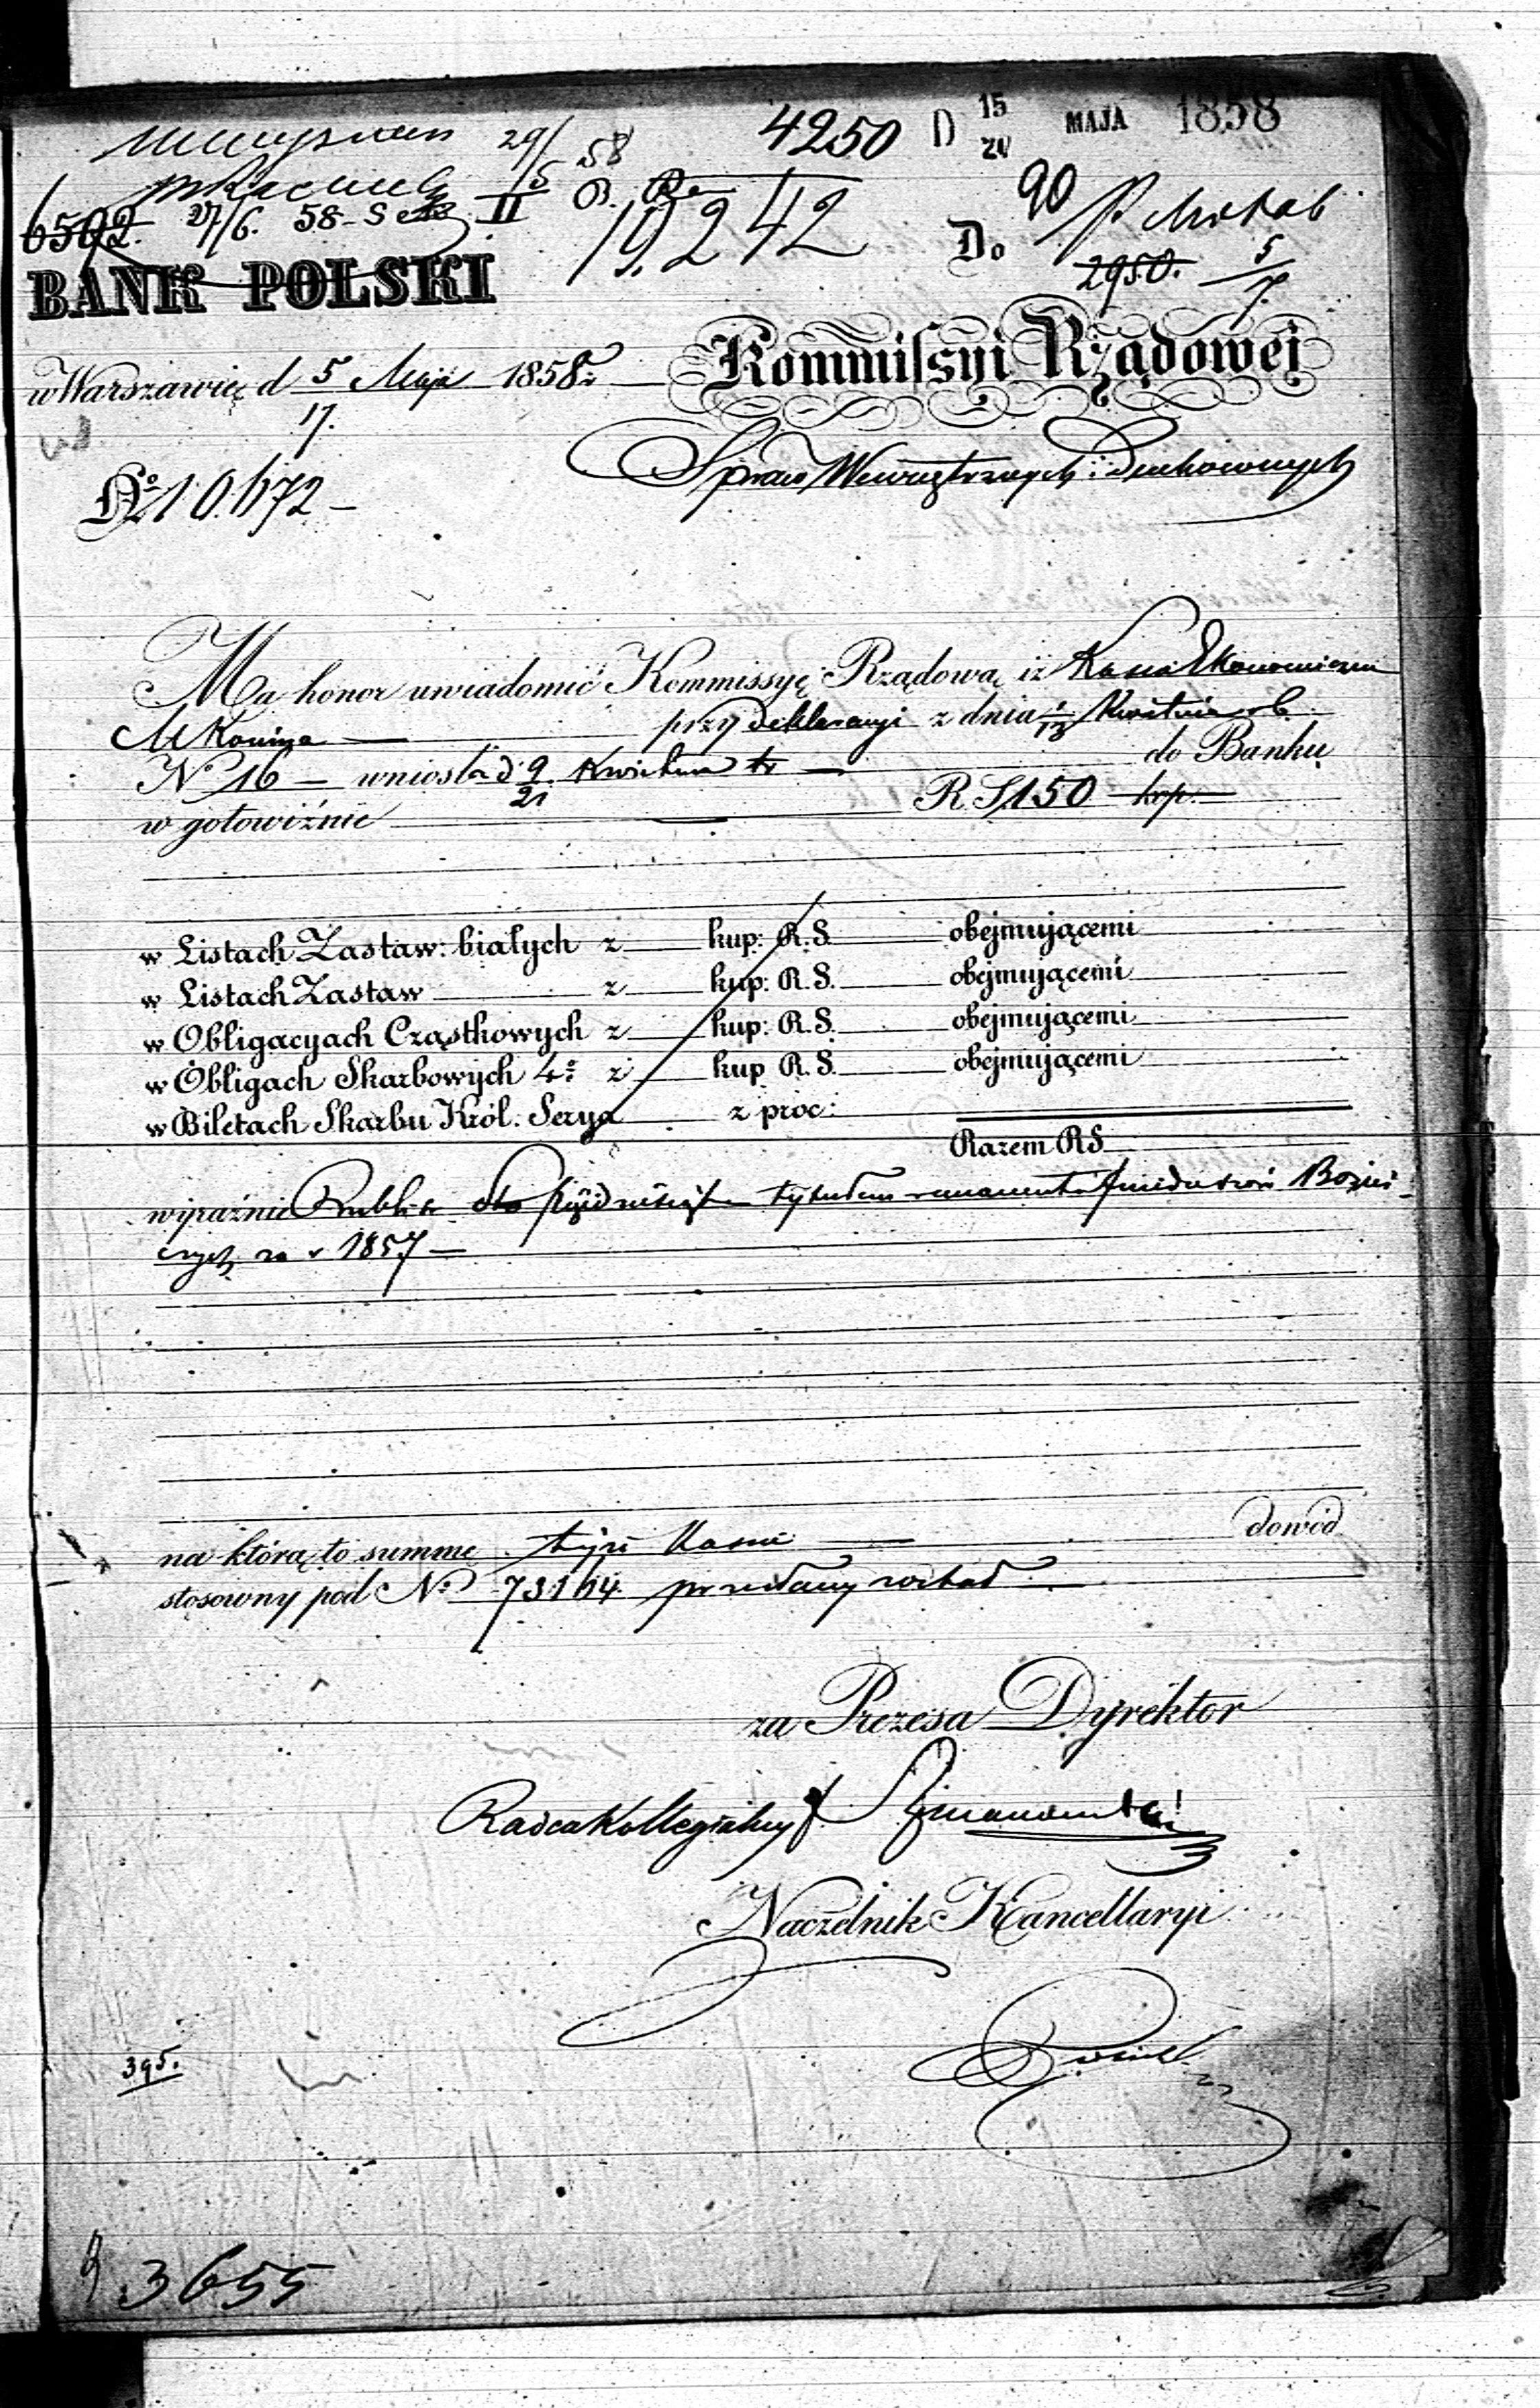 4250 D 15/24 MAJA 1858
29/5 58
6502. 27/6. 58 II
19242
90
Do
2950. 5/7.
BANK POLSKI
w Warszawie d 5/17. Maja 1858 r
Kommissyi Rządowej
Spraw Wewnętrznych i Duchownych
No 10672
Ma honor uwiadomić Kommissyę Rządową iż Kassa Ekonomiczna
M Konina przy deklaracyi z dnia 1/13 Kwietnia r b.
No 16 — wniosła d 9/21 Kwietnia tr do Banku
w gotowiźnie R S 150 kop.
w Listach Zastaw: białych z kup: R.S. obejmującemi
w Listach Zastaw z kup: R.S. obejmującemi
w Obligacyach Cząstkowych z kup: R.S. obejmującemi
w Obligach Skarbowych 4% z kup R.S. obejmującemi
w Biletach Skarbu Król. Serya z proc:
Razem RS
wyraźnie Rubli sr Sto pięćdziesiąt tytułem remanentu funduszów Bożni
czych za r 1857 —
na którą to summę tejże Kassie dowód
stosowny pod No 73164 przesłany został.
za Prezesa Dyrektor
Radca Kollegialny
Naczelnik Kancellaryi
395.
3655